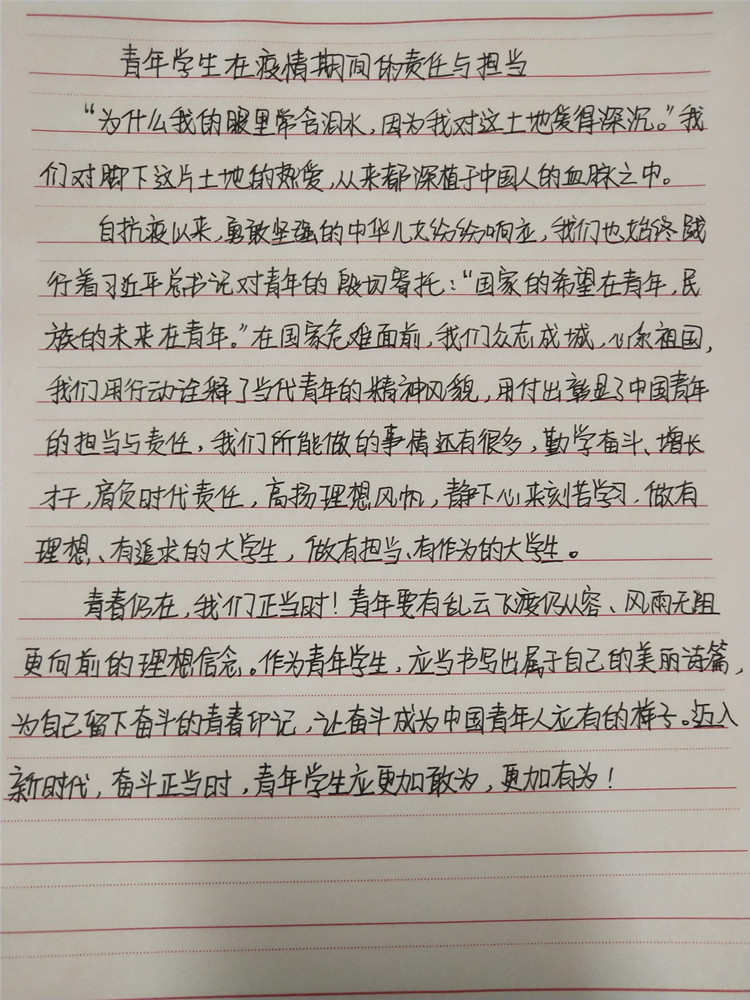 青年学生在疫情期间的责任与担当
“为什么我的眼里常含泪水,因为我对这土地爱得深沉。”我
们对脚下这片土地的热爱,从来都深植于中国人的血脉之中。
自抗疫以来,勇敢坚强的中华儿女纷纷响应,我们也始终践
行着习近平总书记对青年的殷切寄托:“国家的希望在青年,民
族的未来在青年。”在国家危难面前,我们众志成城,心系祖国,
我们用行动诠释了当代青年的精神风貌,用付出彰显了中国青年
的担当与责任,我们所能做的事情还有很多,勤学奋斗、增长
才干,肩负时代责任,高扬理想风帆,静下心来刻苦学习,做有
理想、有追求的大学生,做有担当、有作为的大学生。
青春仍在,我们正当时!青年要有乱云飞渡仍从容、风雨无阻
更向前的理想信念。作为青年学生,应当书写出属于自己的美丽诗篇,
为自己留下奋斗的青春印记,让奋斗成为中国青年人应有的样子。迈入
新时代,奋斗正当时,青年学生应更加敢为,更加有为!